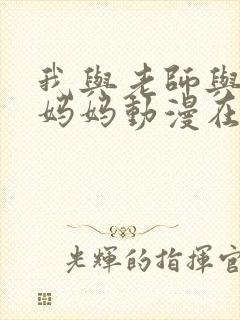 我與老師與
媽媽動漫在
光輝的指揮官